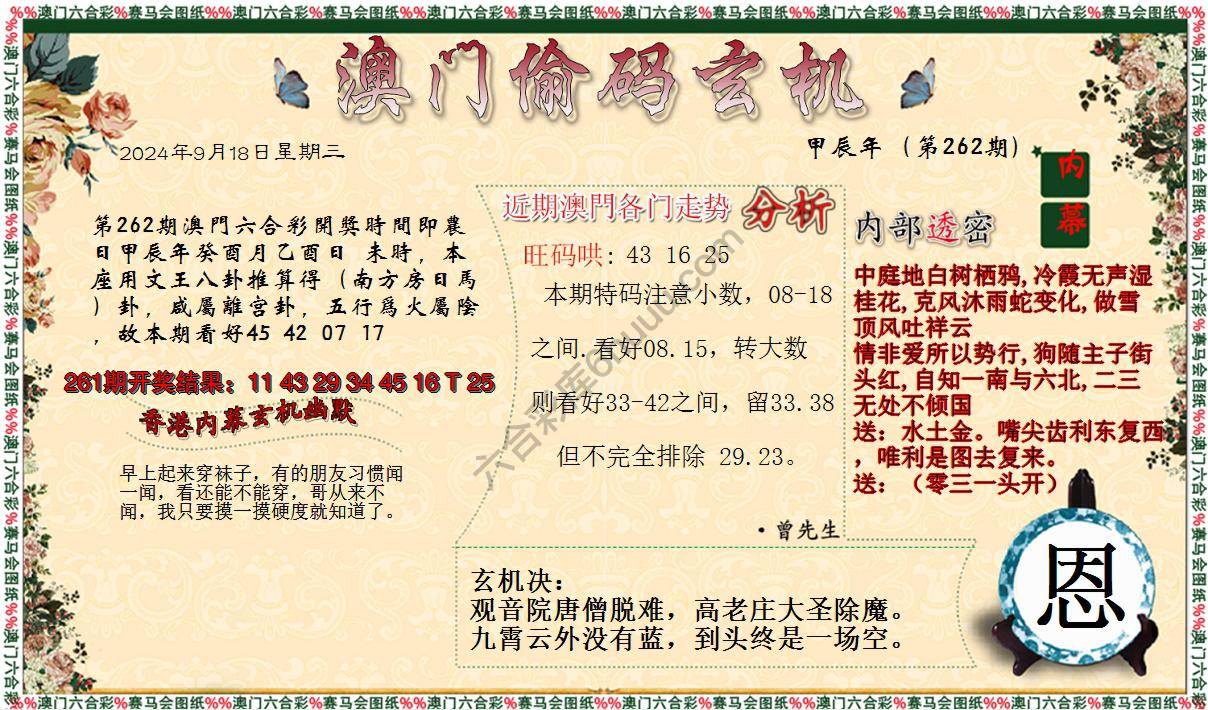 %%澳门六合彩%赛马会图纸%%澳门六合彩%赛马会图纸%%澳门六合彩%赛马会图纸%%澳门六合彩%赛马会图纸%%澳门六合彩%赛马会图纸%%澳门六合彩%赛马会图纸%%
澳门偷码玄机
2024年9月18日星期三
甲辰年（第262期）
内
幕
第262期澳門六合彩開獎時間即農
日甲辰年癸酉月乙酉日 未時，本
座用文王八卦推算得（南方房日馬
）卦，咸屬離宫卦，五行爲火屬陰
，故本期看好45 42 07 17
261期开奖结果：11 43 29 34 45 16 T 25
香港内幕玄机幽默
早上起来穿袜子，有的朋友习惯闻
一闻，看还能不能穿，哥从来不
闻，我只要摸一摸硬度就知道了。
近期澳門各门走势 分析
旺码哄: 43 16 25
本期特码注意小数，08-18
之间.看好08.15，转大数
则看好33-42之间，留33.38
但不完全排除 29.23。
·曾先生
内部透密
中庭地白树栖鸦,冷霞无声湿
桂花,克风沐雨蛇变化,做雪
顶风吐祥云
情非爱所以势行,狗随主子街
头红,自知一南与六北,二三
无处不倾国
送：水土金。嘴尖齿利东复西
，唯利是图去复来。
送：（零三一头开）
玄机决：
观音院唐僧脱难，高老庄大圣除魔。
九霄云外没有蓝，到头终是一场空。
恩
%%澳门六合彩%赛马会图纸%%澳门六合彩%赛马会图纸%%澳门六合彩%赛马会图纸%%澳门六合彩%赛马会图纸%%澳门六合彩%赛马会图纸%%澳门六合彩%赛马会图纸%%